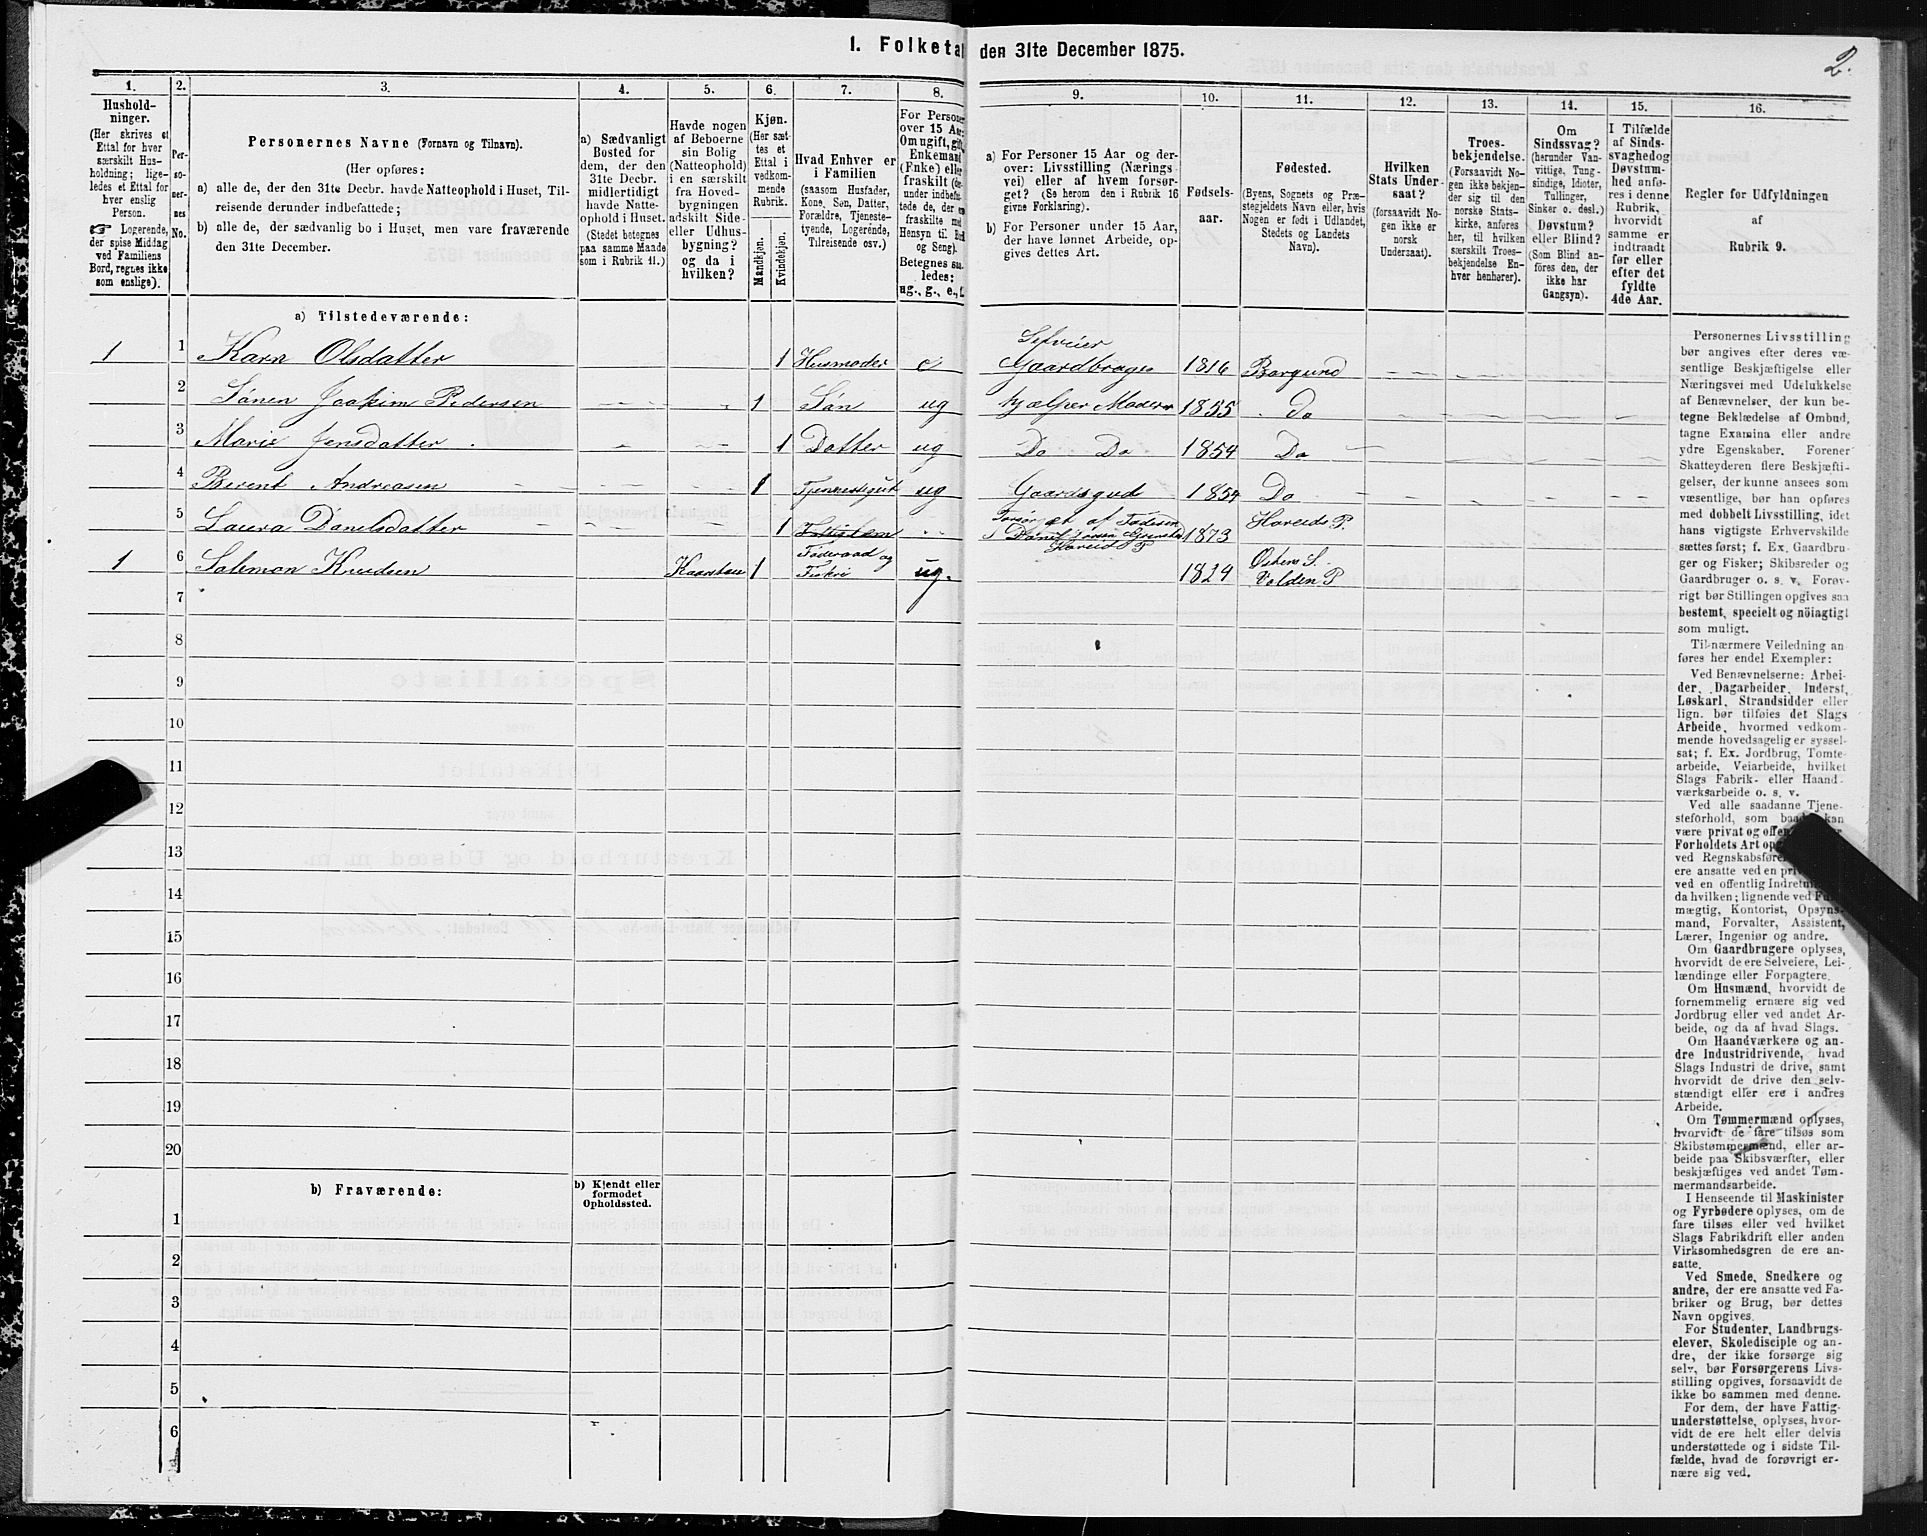 1. Folketal den 31te December 1875.
2.
1. 2. 3. 4. 5. 6. 7. 8. 9. 10. 11. 12. 13. 14. 15. 16.
Hushold-
ninger.
(Her skrives et
Ettal for hver
særskilt Hus-
holdning; lige-
ledes et Ettal for
hver enslig
Person.
☞ Logerende,
der spise Middag
ved Familiens
Bord, regnes ikke
som enslige).
Per-
so-
ner-
nes
No.
Personernes Navne (Fornavn og Tilnavn).
(Her opføres:
a) alle de, der den 31te Decbr. havde Natteophold i Huset, Til-
reisende derunder indbefattede;
b) alle de, der sædvanlig bo i Huset, men vare fraværende
den 31te December.
a) Sædvanligt
Bosted for
dem, der den
31te Decbr.
midlertidigt
havde Natte-
ophold i Huset.
(Stedet betegnes
paa samme Maade
som i Rubrik 11.)
Havde nogen
af Beboerne
sin Bolig
(Natteophold)
i en særskilt
fra Hoved-
bygningen
adskilt Side-
eller Udhus-
bygning?
og da i
hvilken?
Kjøn.
(Her sæt-
tes et
Ettal i
vedkom-
mende
Rubrik.
Mandkjøn.
Kvindekjøn.
Hvad Enhver er
i Familien
(saasom Husfader,
Kone, Søn, Datter,
Forældre, Tjeneste-
tyende, Logerende,
Tilreisende osv.)
For Personer
over 15 Aar:
Om ugift, gift,
Enkemand
(Enke) eller
fraskilt
Betegnes saa-
ledes:
ug., g., e., f.
a) For Personer 15 Aar og der-
over: Livsstilling (Nærings-
vei) eller af hvem forsør-
get? (Se herom den i Rubrik 16
givne Forklaring).
b) For Personer under 15 Aar,
der have lønnet Arbeide, op-
gives dettes Art.
Fødsels-
aar.
Fødested.
(Byens, Sognets og Præ-
stegjeldets Navn eller, hvis
Nogen er født i Udlandet,
Stedets og Landets
Navn).
Hvilken
Stats Under-
saat?
(forsaavidt No-
gen ikke er
norsk
Undersaat).
Troes-
bekjendelse.
(Forsaavidt No-
gen ikke bekjen-
der sig til den
norske Stats-
kirke, anføres
her, til hvilken
særskilt Troes-
bekjendelse En-
hver henhører).
Om
Sindssvag?
(herunder Van-
vittige, Tung-
sindige, Idioter,
Tullinger,
Sinker o. desl.)
Døvstum?
eller Blind?
(Som Blind an-
føres den, der
ikke har
Gangsyn).
I Tilfælde
af Sinds-
svaghed og
Døvstum-
hed anfø-
res i denne
Rubrik,
hvorvidt
samme er
indtraadt
før eller
efter det
fyldte
4de Aar.
Regler for Udfyldningen
af
Rubrik 9.
a) Tilstedeværende:
1 1 Karn Olsdatter 1 Husmoder e Selveier Gaardbruger 1816 Borgund
2 Sønen Joakim Pedersen 1 Søn ug hjælper Moderen 1855 Do
3 Marie Jensdatter 1 Datter ug Do Do 1854 Do
4 Berent Andreasen 1 Tjenestegut ug Gaardsgud 1854 Do
5 Laura Danelsdatter 1 1873 Hareids P.
1 6 Salemon Knudsen 1 Føderaad og Fisker ug. 1829 Volden P
7
8
9
10
11
12
13
14
15
16
17
18
19
20
b) Fraværende:
b) Kjendt eller
formodet
Opholdssted.
1
2
3
4
5
6
Personernes Livsstilling
bør angives efter deres væ-
sentlige Beskjæftigelse eller
Næringsvei med Udelukkelse
af Benævnelser, der kun be-
tegne Beklædelse af Ombud,
tagne Examina eller andre
ydre Egenskaber. Forener
Skatteyderen flere Beskjæfti-
gelser, der kunne ansees som
væsentlige, bør han opføres
med dobbelt Livsstilling, idet
hans vigtigste Erhvervskilde
sættes først; f. Ex. Gaardbru-
ger og Fisker; Skibsreder og
Gaardbruger o. s. v. Forøv-
rigt bør Stillingen opgives saa
bestemt, specielt og nöiagtigt
som muligt.
Til nærmere Veiledning an-
føres her endel Exempler:
Ved Benævnelserne: Arbei-
der, Dagarbeider, Inderst,
Løskarl, Strandsidder eller
lign. bør tilføies det Slags
Arbeide, hvormed vedkom-
mende hovedsagelig er syssel-
sat; f. Ex. Jordbrug, Tomte-
arbeide, Veiarbeide, hvilket
Slags Fabrik- eller Haand-
værksarbeide o. s. v.
Ved alle saadanne Tjene-
steforhold, som baade kan
være privat og offen
Forholdets Art op
ved Regnskabsføre
ere ansatte ved en pri
ved en offentlig Indretn
da hvilken; lignende ved Ful
mægtig, Kontorist, Opsyns-
mand, Forvalter, Assistent,
Lærer, Ingeniør og andre.
Om Gaardbrugere oplyses,
hvorvidt de ere Selveiere, Lei-
lændinge eller Forpagtere.
Om Husmænd, hvorvidt de
fornemmelig ernære sig ved
Jordbrug eller ved andet Ar-
beide, og da af hvad Slags.
Om Haandværkere og an-
dre Industridrivende, hvad
Slags Industri de drive, samt
hvorvidt de drive den selv-
stændigt eller ere i andres
Arbeide.
Om Tømmermænd oplyses,
hvorvidt de fare tilsøs som
Skibstømmermænd, eller ar-
beide paa Skibsværfter, eller
beskjæftiges ved andet Tøm-
mermandsarbeide.
I Henseende til Maskinister
og Fyrbødere oplyses, om de
fare tilsøs eller ved hvilket
Slags Fabrikdrift eller anden
Virksomhedsgren de ere an-
satte.
Ved Smede, Snedkere og
andre, der ere ansatte ved Fa-
briker og Brug, bør dettes
Navn opgives.
For Studenter, Landbrugs-
elever, Skoledisciple og an-
dre, der ikke forsørge sig
selv, bør Forsørgerens Livs-
stilling opgives, forsaavidt de
ikke bo sammen med denne.
For dem, der have Fattig-
understøttelse, oplyses, hvor-
vidt de ere helt eller delvis
understøttede og i sidste Til-
fælde, hvad de forøvrigt er-
nære sig ved.